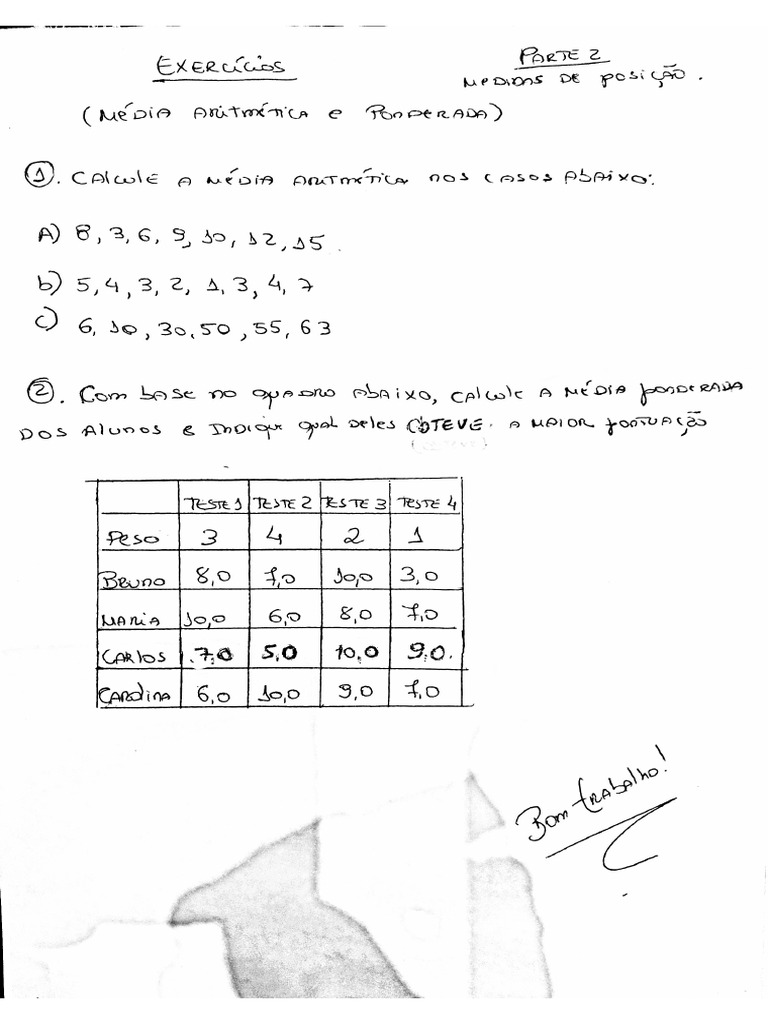 EXERCÍCIOS
PARTE 2
MEDIDAS DE POSIÇÃO.
(MÉDIA ARITMÉTICA E PONDERADA)
1. CALCULE A MÉDIA ARITMÉTICA NOS CASOS ABAIXO:
A) 8, 3, 6, 9, 10, 12, 15.
b) 5, 4, 3, 2, 1, 3, 4, 7
C) 6, 10, 30, 50, 55, 63
2. COM BASE NO QUADRO ABAIXO, CALCULE A MÉDIA PONDERADA
DOS ALUNOS E INDIQUE QUAL DELES OBTEVE A MAIOR PONTUAÇÃO
TESTE 1 TESTE 2 TESTE 3 TESTE 4
PESO 3 4 2 1
BRUNO 8,0 7,0 10,0 3,0
MARIA 10,0 6,0 8,0 7,0
CARLOS 7,0 5,0 10,0 9,0
CAROLINA 6,0 10,0 9,0 7,0
BOM TRABALHO!